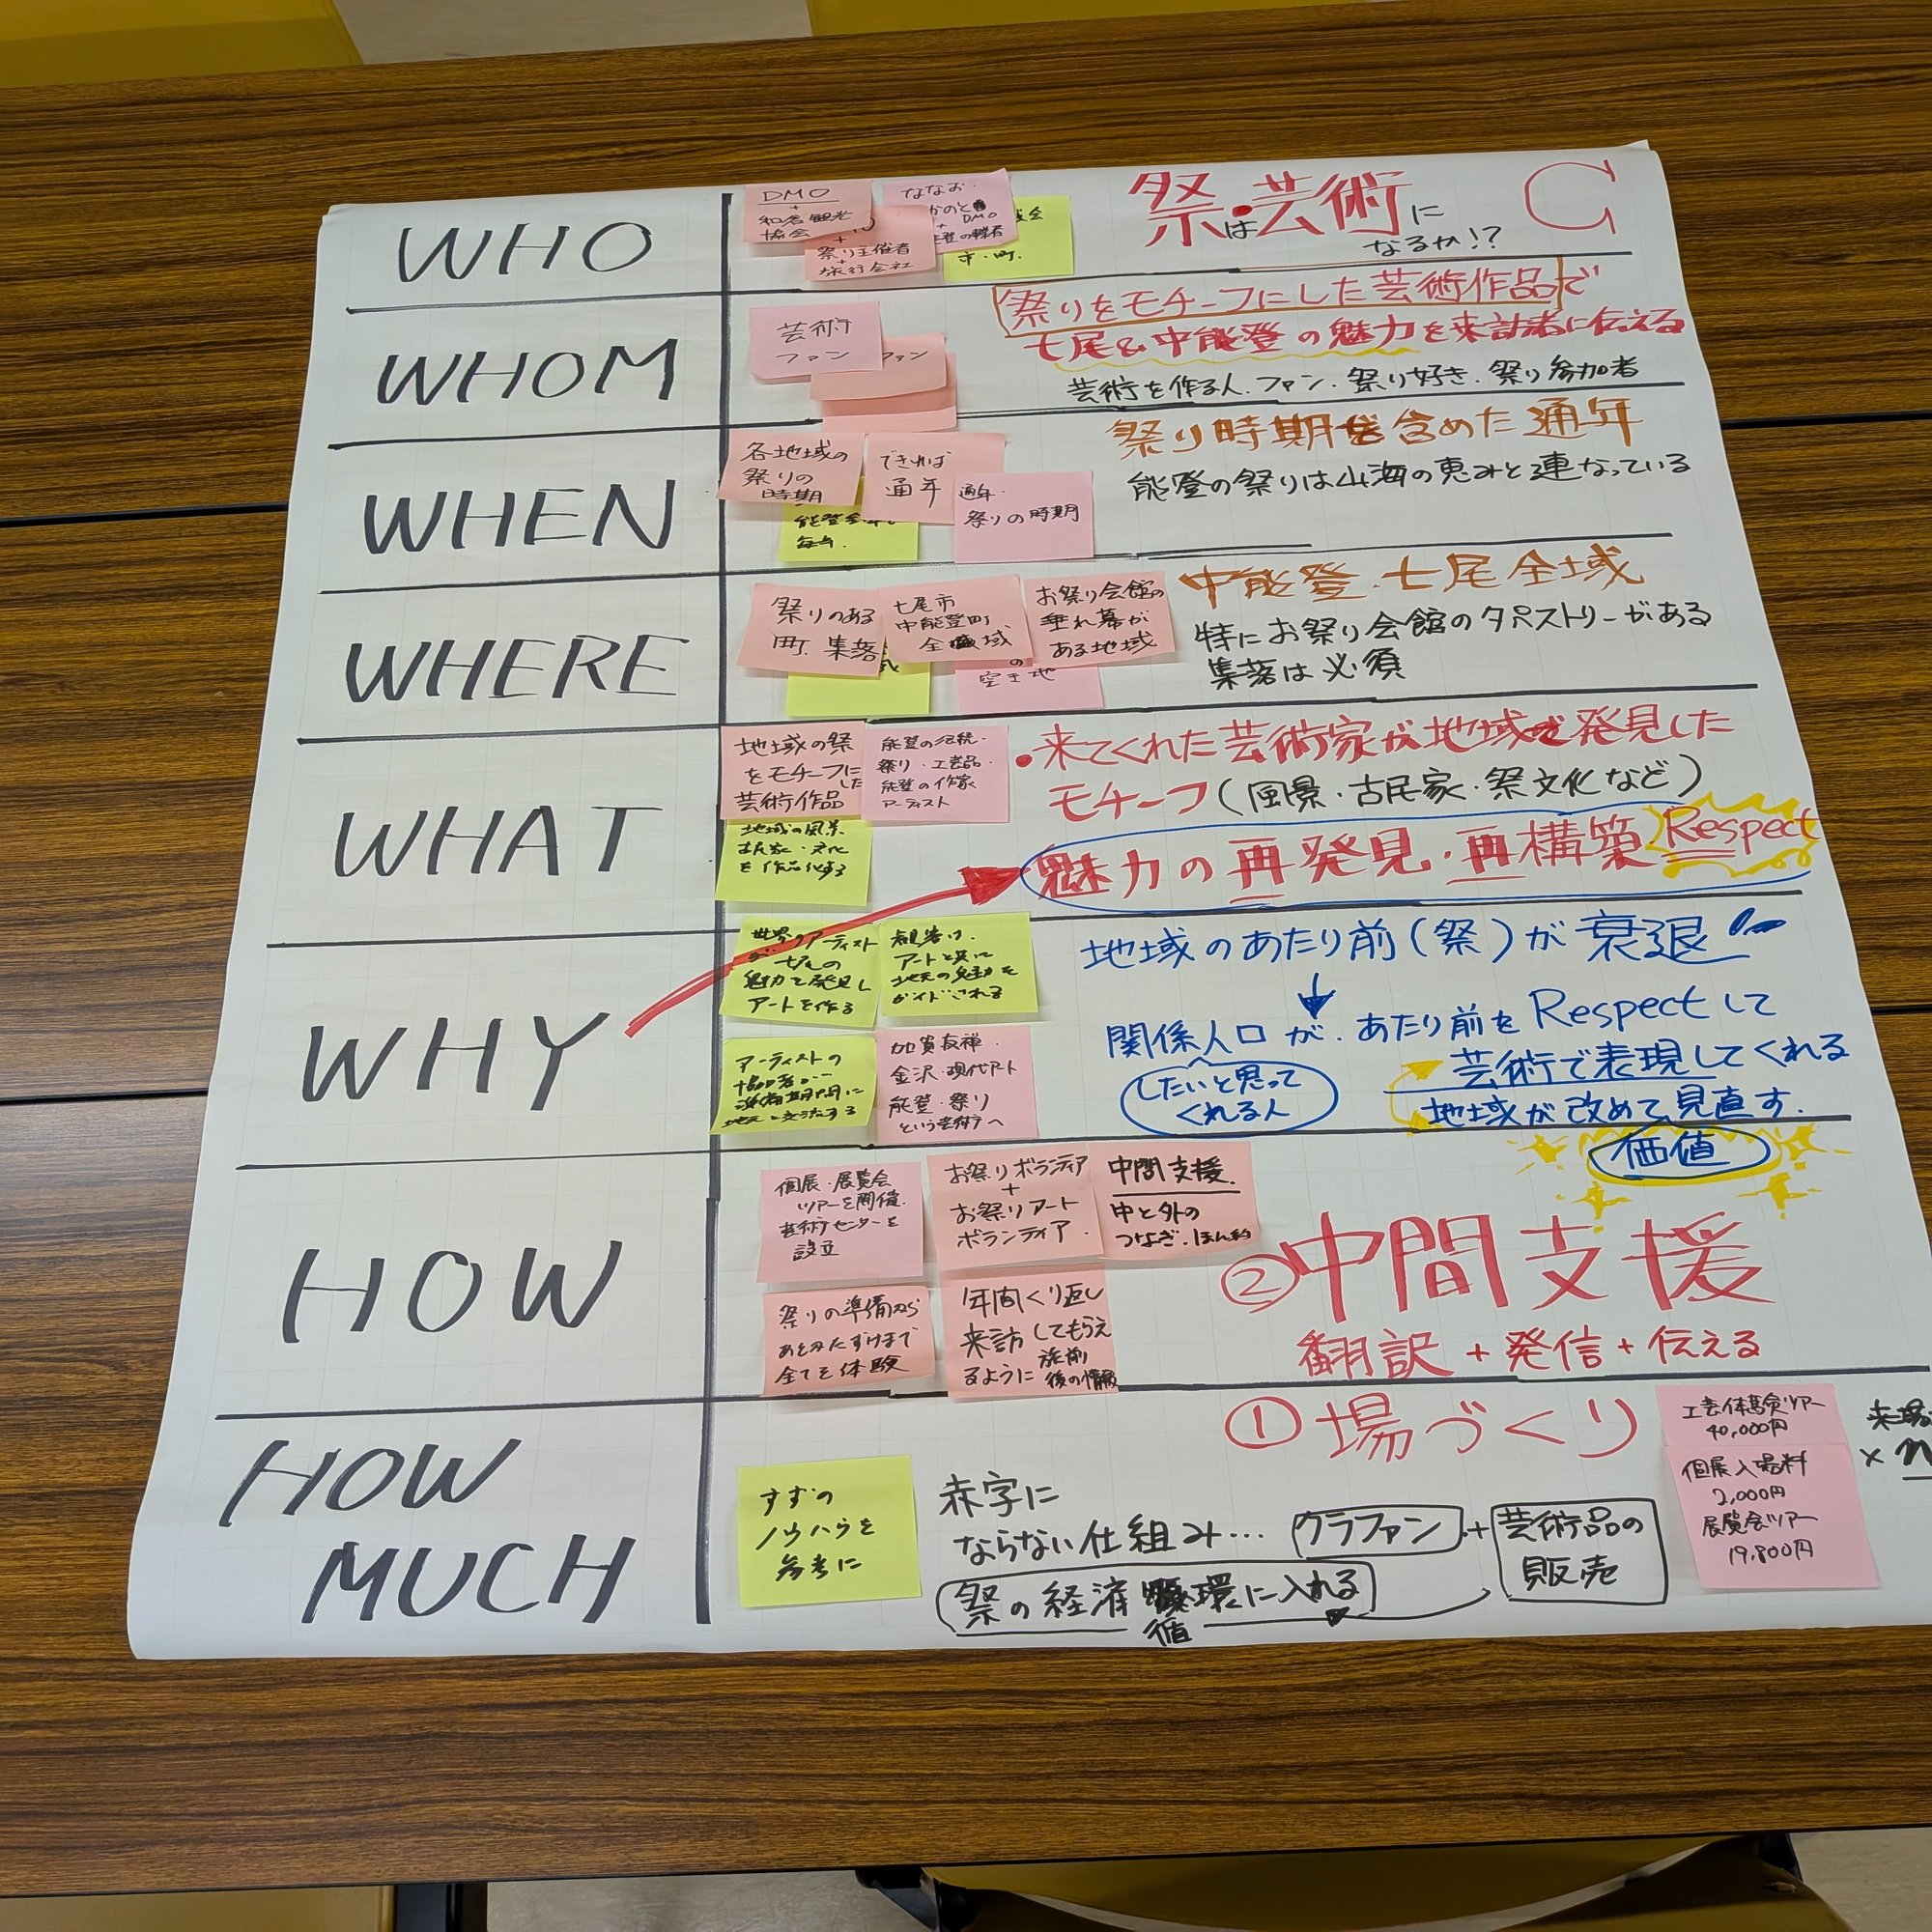 祭は芸術に
なるか!?
C
WHO
DMO
+
和倉観光
協会
+
祭り主催者
+
旅行会社
ななお・
DMO
+
市・町.
WHOM
芸術
ファン
ファン
祭りをモチーフにした芸術作品で
七尾&中能登の魅力を来訪者に伝える
芸術を作る人.ファン.祭り好き.祭り参加者
WHEN
各地域の
祭りの
時期
できれば
通年
通年.
祭りの時期
毎年.
祭り時期を含めた通年
能登の祭りは山海の恵みと連なっている
WHERE
祭りのある
町.集落
七尾市
中能登町.
全域
お祭り会館の
垂れ幕が
ある地域
の
空き地
中能登.七尾全域
特にお祭り会館のタペストリーがある
集落は必須
WHAT
地域の祭
をモチーフにした
芸術作品
能登の伝統.
祭り.工芸品.
能登の作家
アーティスト
地域の風景
古民家・文化
を作品化する
・来てくれた芸術家が地域で発見した
モチーフ(風景・古民家・祭文化など)
魅力の再発見・再構築 Respect
WHY
世界のアーティスト
が七尾の
魅力を発見し
アートを作る
観客は.
アートと共に
地元の魅力を
ガイドされる
アーティストの
協力者が
準備期間に
地元と交流する
加賀友禅.
金沢・現代アート
能登・祭り
という芸術へ
地域のあたり前(祭)が衰退
↓
関係人口が、あたり前をRespectして
したいと思って
くれる人
芸術で表現してくれる
地域が改めて見直す.
価値
HOW
個展・展覧会
ツアーを開催.
芸術センターを
設立
お祭りボランティア
+
お祭りアート
ボランティア.
中間支援.
中と外の
つなぎ.ほん約
祭りの準備から
あとかたずけまで
全てを体験
年間くり返し
来訪してもらえ
るように 旅前
後の情報
②中間支援
翻訳+発信+伝える
①場づくり
HOW
MUCH
すずの
ノウハウを
参考に
赤字に
ならない仕組み… クラファン + 芸術品の
販売
祭の経済循環に入れる
工芸体験ツアー
40,000円
個展入場料
2,000円
展覧会ツアー
19,800円
来場
×